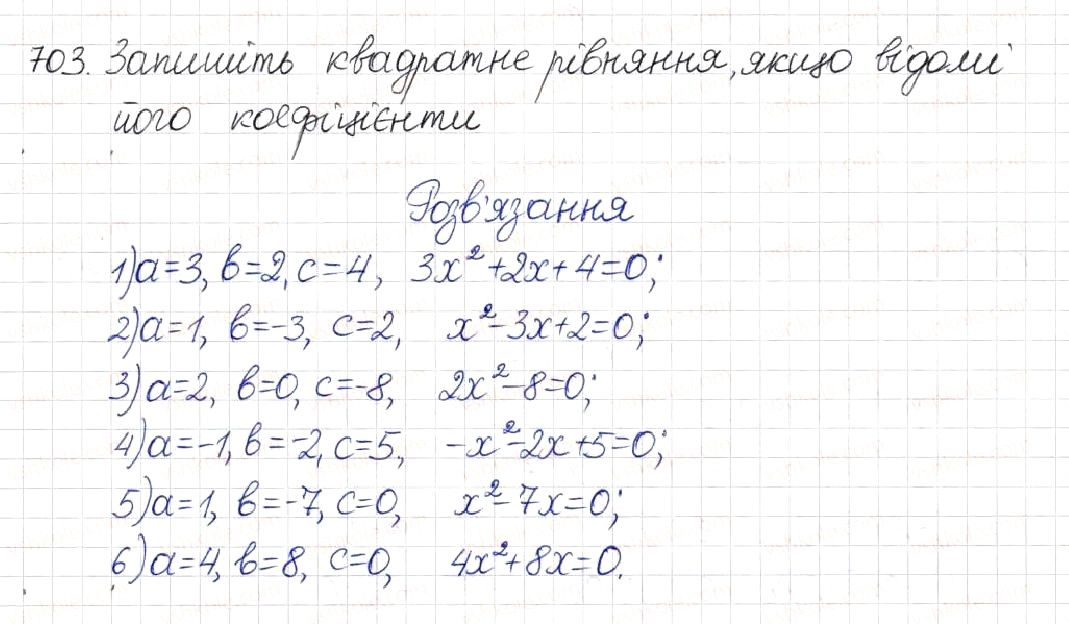 703. Запишіть квадратне рівняння, якщо відомі
його коефіцієнти
Розв'язання
1) a=3, b=2, c=4, 3x²+2x+4=0;
2) a=1, b=-3, c=2, x²-3x+2=0;
3) a=2, b=0, c=-8, 2x²-8=0;
4) a=-1, b=-2, c=5, -x²-2x+5=0;
5) a=1, b=-7, c=0, x²-7x=0;
6) a=4, b=8, c=0, 4x²+8x=0.